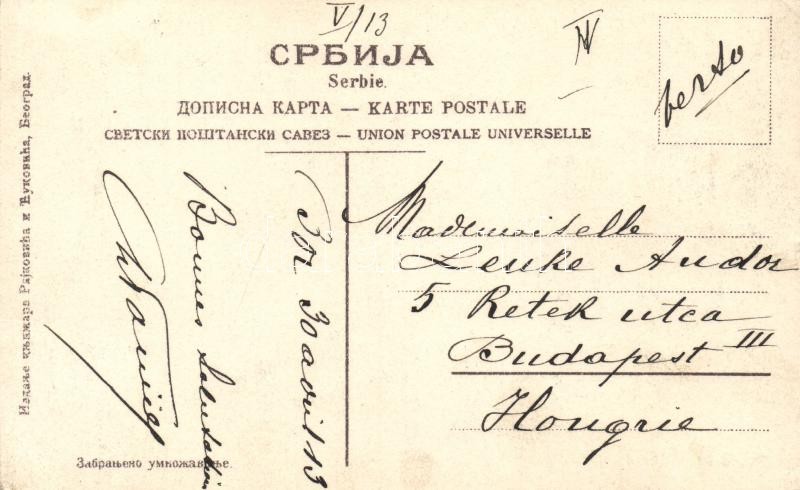 V/13
IV
СРБИЈА
Serbie.
ДОПИСНА КАРТА — KARTE POSTALE
СВЕТСКИ ПОШТАНСКИ САВЕЗ — UNION POSTALE UNIVERSELLE
verso
Mademoiselle
Lenke Andor
5 Retek utca
Budapest III
Hongrie
30 avril 13
Bonnes Salutations
Забрањено умножавање.
Издање књижара Рајковића и Ћуковића, Београд.